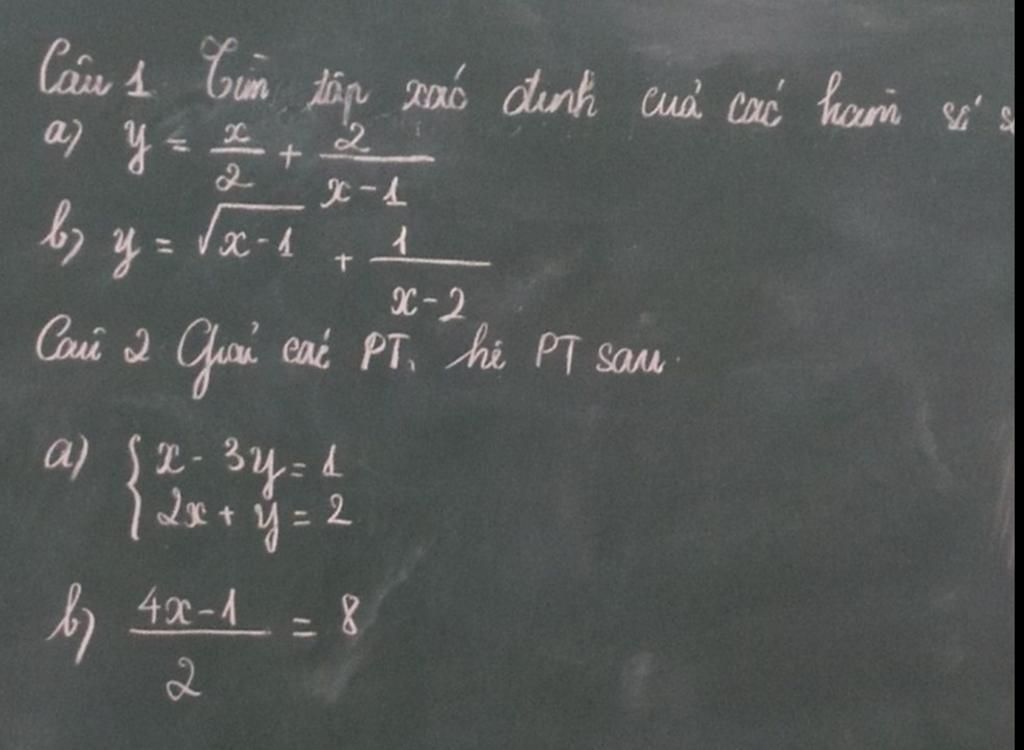 Câu 1 Tìm tập xác định của các hàm số
a) y = x/2 + 2/(x-1)
b) y = √(x-1) + 1/(x-2)
Câu 2 Giải các PT, hệ PT sau.
a) { x - 3y = 1
2x + y = 2
b) (4x-1)/2 = 8